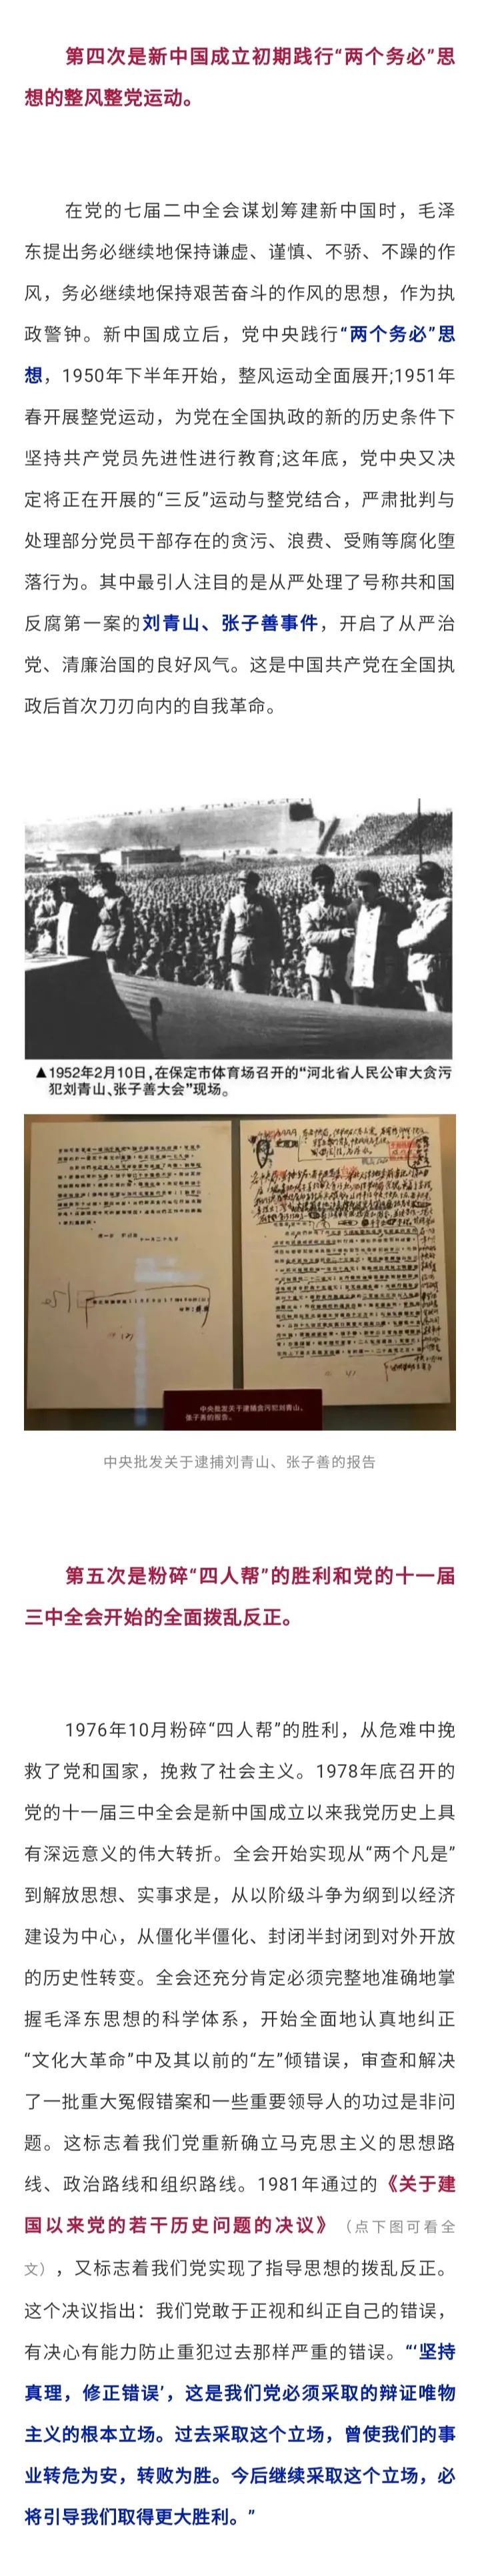 第四次是新中国成立初期践行“两个务必”思
想的整风整党运动。
在党的七届二中全会谋划筹建新中国时，毛泽
东提出务必继续地保持谦虚、谨慎、不骄、不躁的作
风，务必继续地保持艰苦奋斗的作风的思想，作为执
政警钟。新中国成立后，党中央践行“两个务必”思
想，1950年下半年开始，整风运动全面展开;1951年
春开展整党运动，为党在全国执政的新的历史条件下
坚持共产党员先进性进行教育;这年底，党中央又决
定将正在开展的“三反”运动与整党结合，严肃批判与
处理部分党员干部存在的贪污、浪费、受贿等腐化堕
落行为。其中最引人注目的是从严处理了号称共和国
反腐第一案的刘青山、张子善事件，开启了从严治
党、清廉治国的良好风气。这是中国共产党在全国执
政后首次刀刃向内的自我革命。
▲1952年2月10日,在保定市体育场召开的“河北省人民公审大贪污
犯刘青山、张子善大会”现场。
中央批发关于逮捕贪污犯刘青山、
张子善的报告。
中央批发关于逮捕刘青山、张子善的报告
第五次是粉碎“四人帮”的胜利和党的十一届
三中全会开始的全面拨乱反正。
1976年10月粉碎“四人帮”的胜利，从危难中挽
救了党和国家，挽救了社会主义。1978年底召开的
党的十一届三中全会是新中国成立以来我党历史上具
有深远意义的伟大转折。全会开始实现从“两个凡是”
到解放思想、实事求是，从以阶级斗争为纲到以经济
建设为中心，从僵化半僵化、封闭半封闭到对外开放
的历史性转变。全会还充分肯定必须完整地准确地掌
握毛泽东思想的科学体系，开始全面地认真地纠正
“文化大革命”中及其以前的“左”倾错误，审查和解决
了一批重大冤假错案和一些重要领导人的功过是非问
题。这标志着我们党重新确立马克思主义的思想路
线、政治路线和组织路线。1981年通过的《关于建
国以来党的若干历史问题的决议》（点下图可看全
文），又标志着我们党实现了指导思想的拨乱反正。
这个决议指出：我们党敢于正视和纠正自己的错误，
有决心有能力防止重犯过去那样严重的错误。“‘坚持
真理，修正错误’，这是我们党必须采取的辩证唯物
主义的根本立场。过去采取这个立场，曾使我们的事
业转危为安，转败为胜。今后继续采取这个立场，必
将引导我们取得更大胜利。”